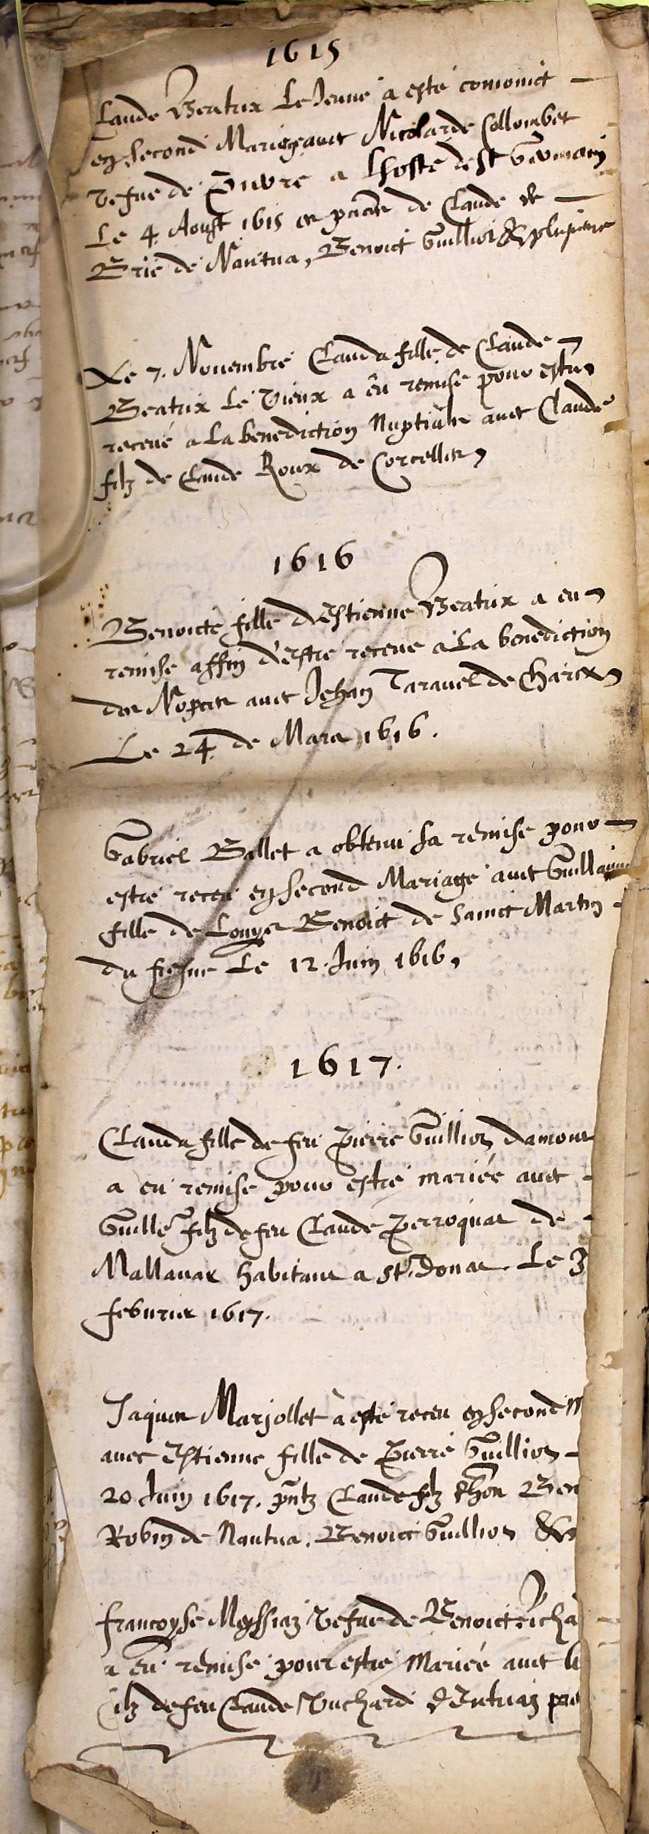 1615
Claude Beatrix Le Jeune a esté conioinct
en second Mariage avec Nicolarde Collombet
vefue de Pierre a Lhoste de St Germain
Le 4. Aoust 1615 en pnce de Claude de
Brie de Nantua, Benoict Guillion & plusieurs
Le 7. Nouembre Clauda fille de Claude
Beatrix Le Vieux a eu remise pour estre
receué a La benediction Nuptiale auec Claude
filz de Claude Roux de Corcelles
1616
Benoicte fille d'Estienne Beatrix a eu
remise affin d'estre receue a La benediction
des Nopces auec Jehan Taravel de Charix
Le 24. de Mars 1616.
Gabriel Ballet a obtenu sa remise pour
estre receu en second Mariage auec Guillauma
fille de Louys Benoict de Sainct Martin
du fresne Le 12. Juin 1616,
1617.
Clauda fille de feu Pierre Guillion damour
a eu remise pour estre mariée auec
Guille filz de feu Claude Perroquar de
Mallauar habitant a St Donar. Le 3
feburier 1617.
Jaques Marjollet a esté receu en second M
auec Estienne fille de Pierre Guillion
20 Juin 1617. pntz Claude filz Ben
Robin de Nantua. Benoict Guillion &
Francoyse Myssiaz Vefue de Benoict Richa
a eu remise pour estre Mariée auec
filz de feu Claude Vuchard